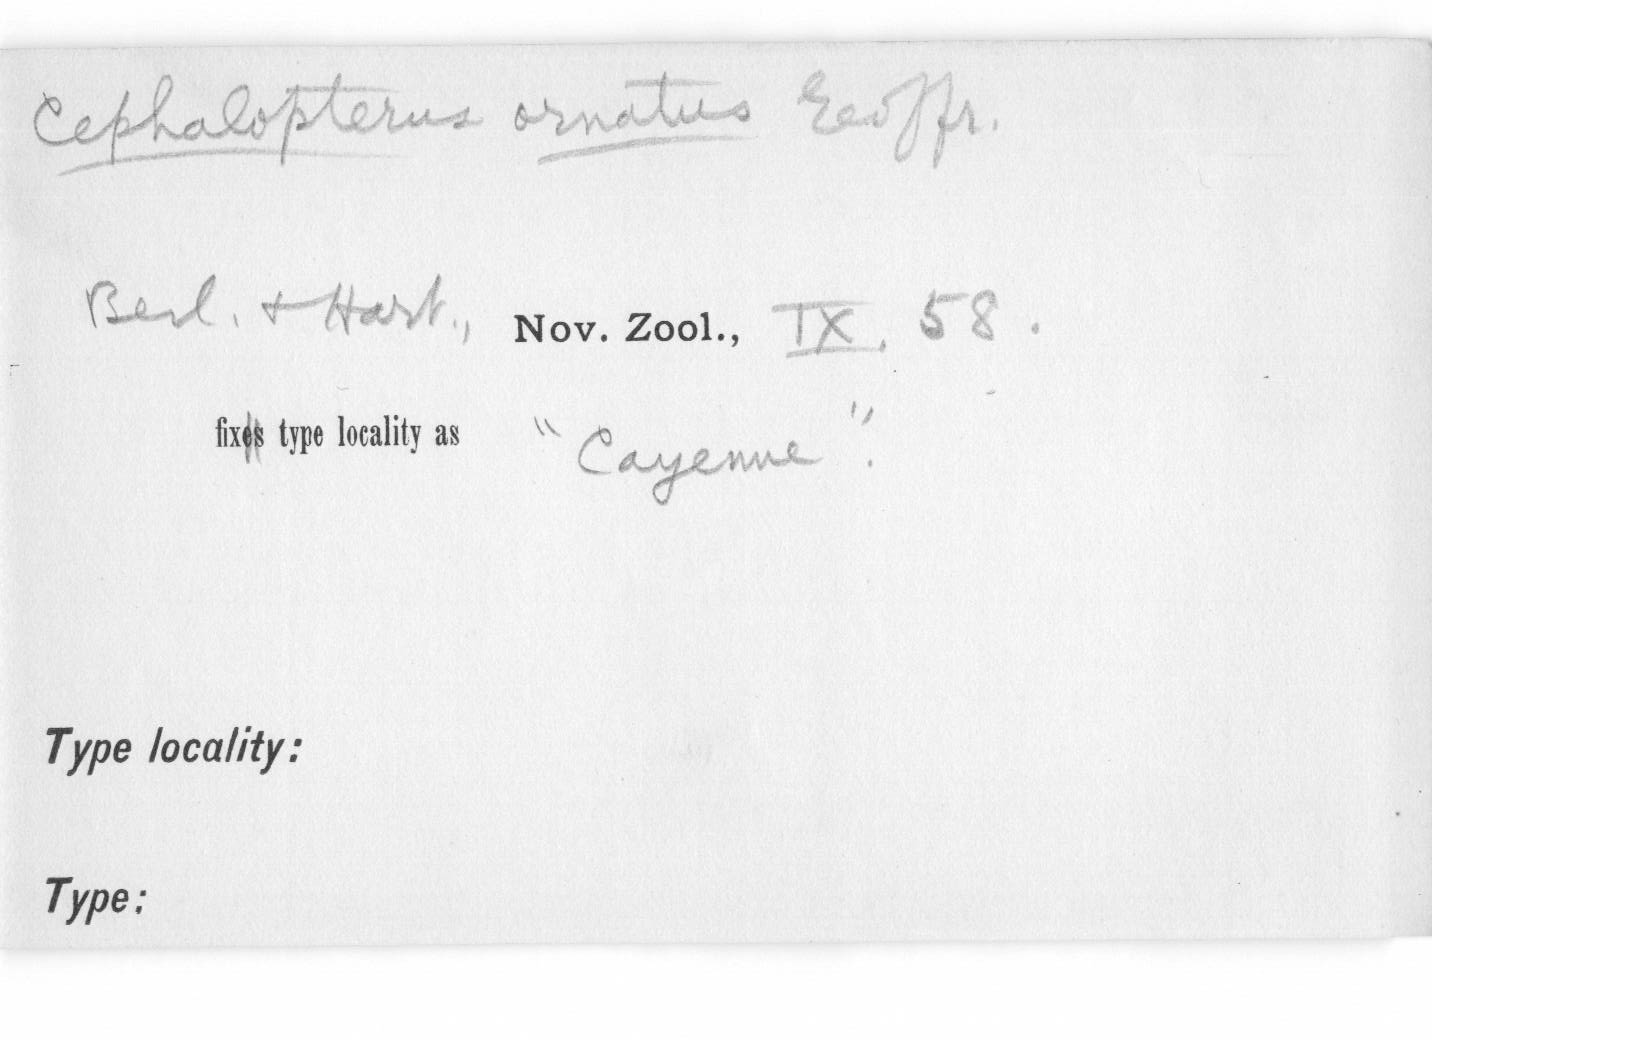 Cephalopterus ornatus Geoffr.
Berl. & Hart., Nov. Zool., IX, 58.
fix type locality as "Cayenne".
Type locality:
Type: